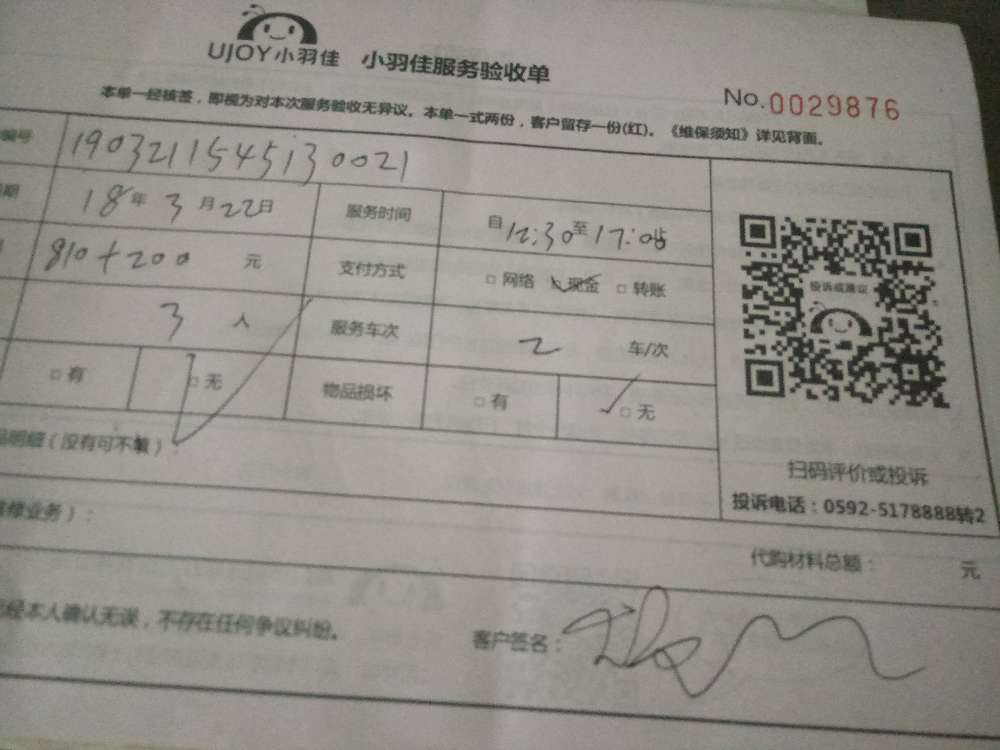 UJOY小羽佳 小羽佳服务验收单
No.0029876
本单一经核签，即视为对本次服务验收无异议。本单一式两份，客户留存一份(红)。《维保须知》详见背面。
编号 1903211545130021
期 18年3月22日 服务时间 自12:30至17:05
810+200 元 支付方式 □网络 □现金 □转账
3 人 服务车次 2 车/次
□有 □无 物品损坏 □有 □无
品明细（没有可不填）：
投诉或建议
扫码评价或投诉
投诉电话：0592-5178888转2
维修业务）：
代购材料总额： 元
经本人确认无误，不存在任何争议纠纷。
客户签名：